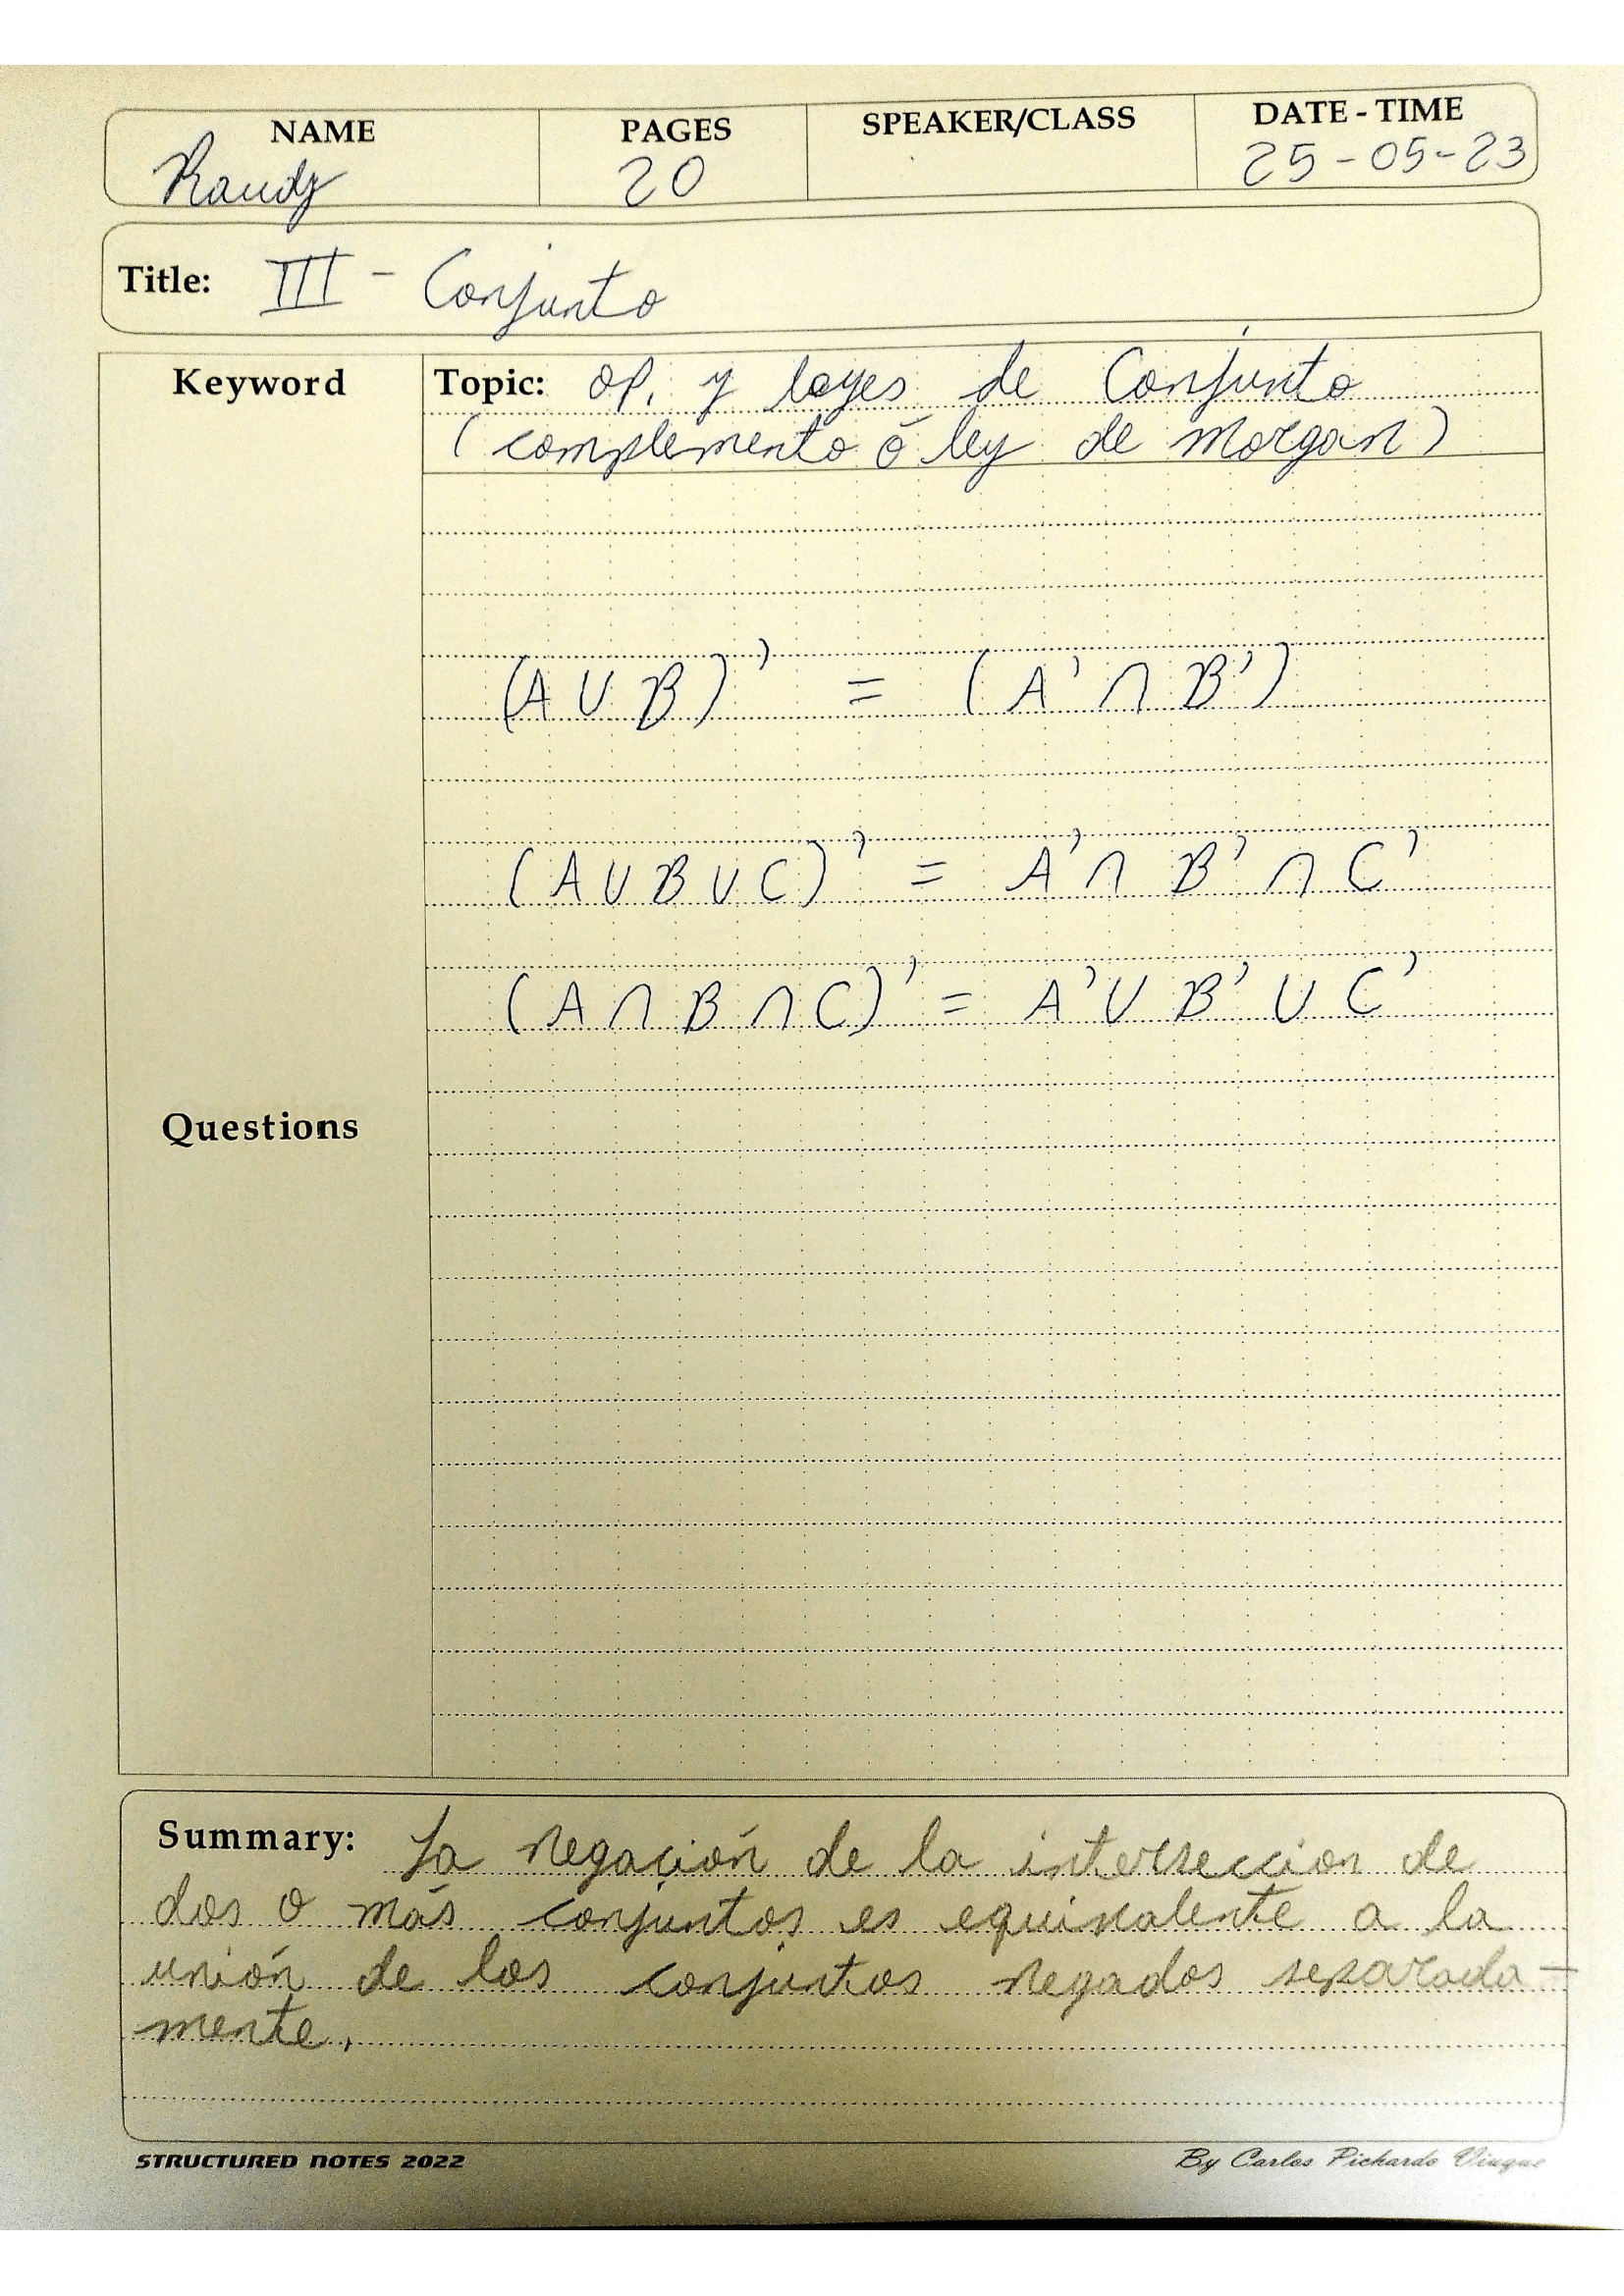 NAME PAGES SPEAKER/CLASS DATE - TIME
Randy 20 25-05-23
Title: III - Conjunto
Keyword Topic: op. y leyes de Conjunto
(complemento ó ley de morgan)
(A ∪ B)' = (A' ∩ B')
(A ∪ B ∪ C)' = A' ∩ B' ∩ C'
(A ∩ B ∩ C)' = A' ∪ B' ∪ C'
Questions
Summary: La negación de la intersección de
dos o más conjuntos es equivalente a la
unión de los conjuntos negados separada-
mente.
STRUCTURED NOTES 2022 By Carlos Pichardo Viuque